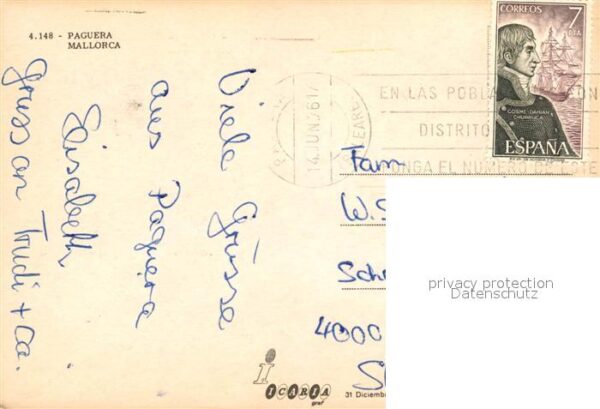 4.148 - PAGUERA
MALLORCA
Viele Grüsse
aus Paguera
Elisabeth
Gruss an Trudi + Co.
CORREOS 7
PTA
COSME DAMIAN
CHURRUCA
ESPAÑA
14 JUN
EN LAS POBLA
DISTRITO
PONGA EL NUMERO DE ESTE
Fam
W. S
Sch
4000
privacy protection
Datenschutz
ICARIA
graf
31 Diciemb